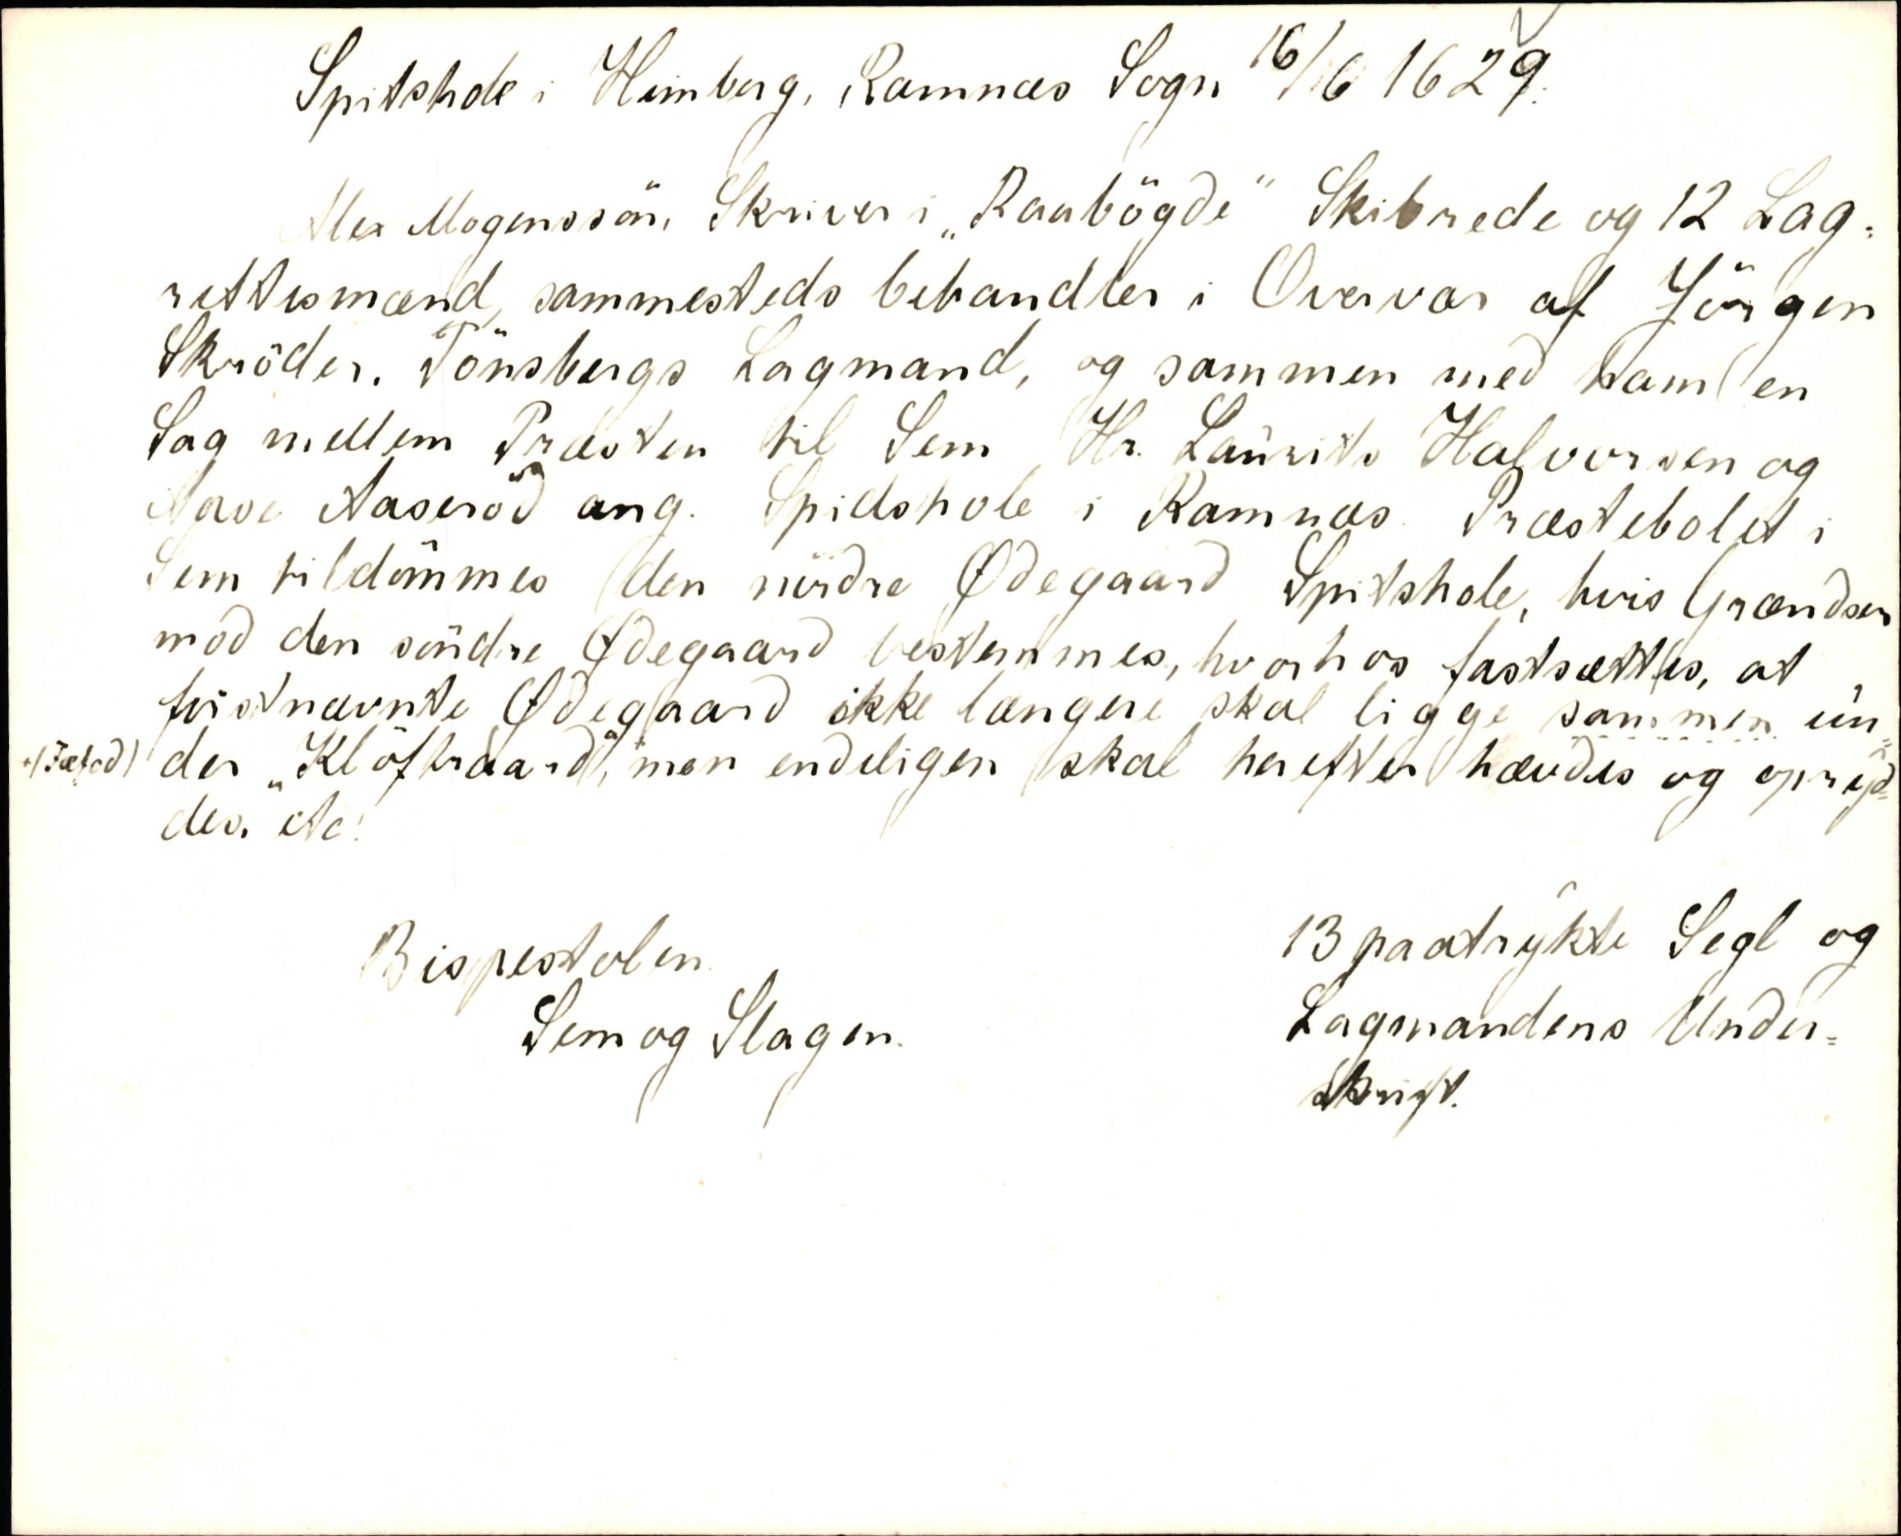 Spitshole i Himberg, Ramnæs Sogn 16/6 1629.
Alex Mogenssön, Skriver i „Raabögde" Skibrede og 12 Lag-
rettismænd, sammesteds behandler i Overvær af Jörgen
Skröder, Tönsbergs Lagmand, og sammen med ham en
Sag mellem Præsten til Sem Hr. Laurits Halvorsen og
Aase Aaseröd ang. Spidshole i Ramnæs. Præstebolet i
Sem tildömmes den nördre Ødegaard Spitshole, hvis Grændser
mod den söndre Ødegaard bestemmes, hvorhos fastsættes, at
förstnævnte Ødegaard ikke længere skal ligge sammen un-
der „Klöftraard", men endeligen skal herefter hævdes og opryd-
des. etc.
Bispestolen
Sem og Slagen.
13 paatrykte Segl og
Lagmandens Under-
skrift.